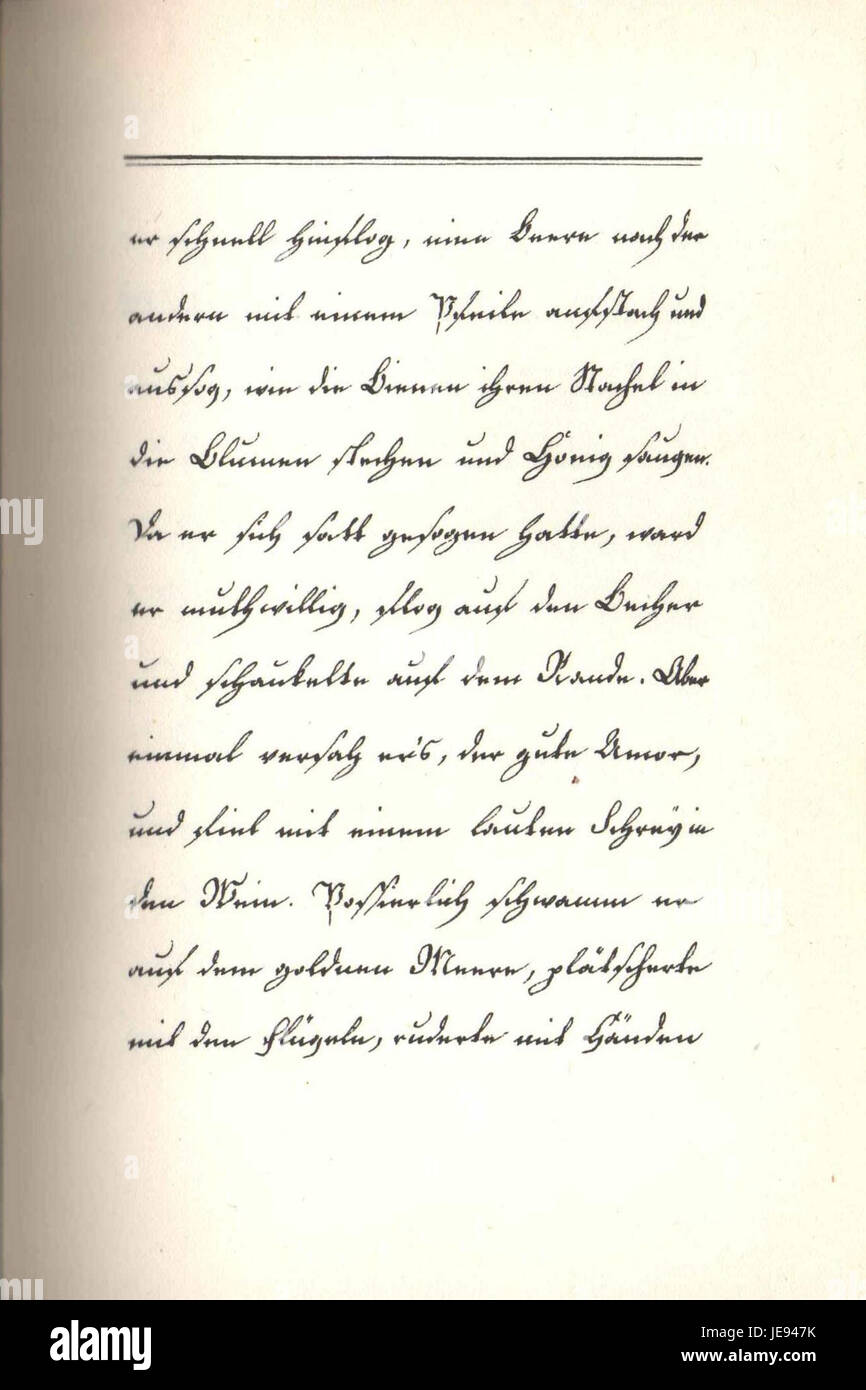 er schnell hinflog, eine Beere nach der
andern mit einem Pfeile aufstach und
aussog, wie die Bienen ihren Stachel in
die Blumen stechen und Honig saugen.
Da er sich satt gesogen hatte, ward
er muthwillig, flog auf den Becher
und schaukelte auf dem Rande. Aber
einmal versah er's, der gute Amor,
und fiel mit einem lauten Schrey in
den Wein. Possierlich schwamm er
auf dem goldnen Meere, plätscherte
mit den Flügeln, ruderte mit Händen
a
a
a
a
alamy stock photo
JE947K
www.alamy.com